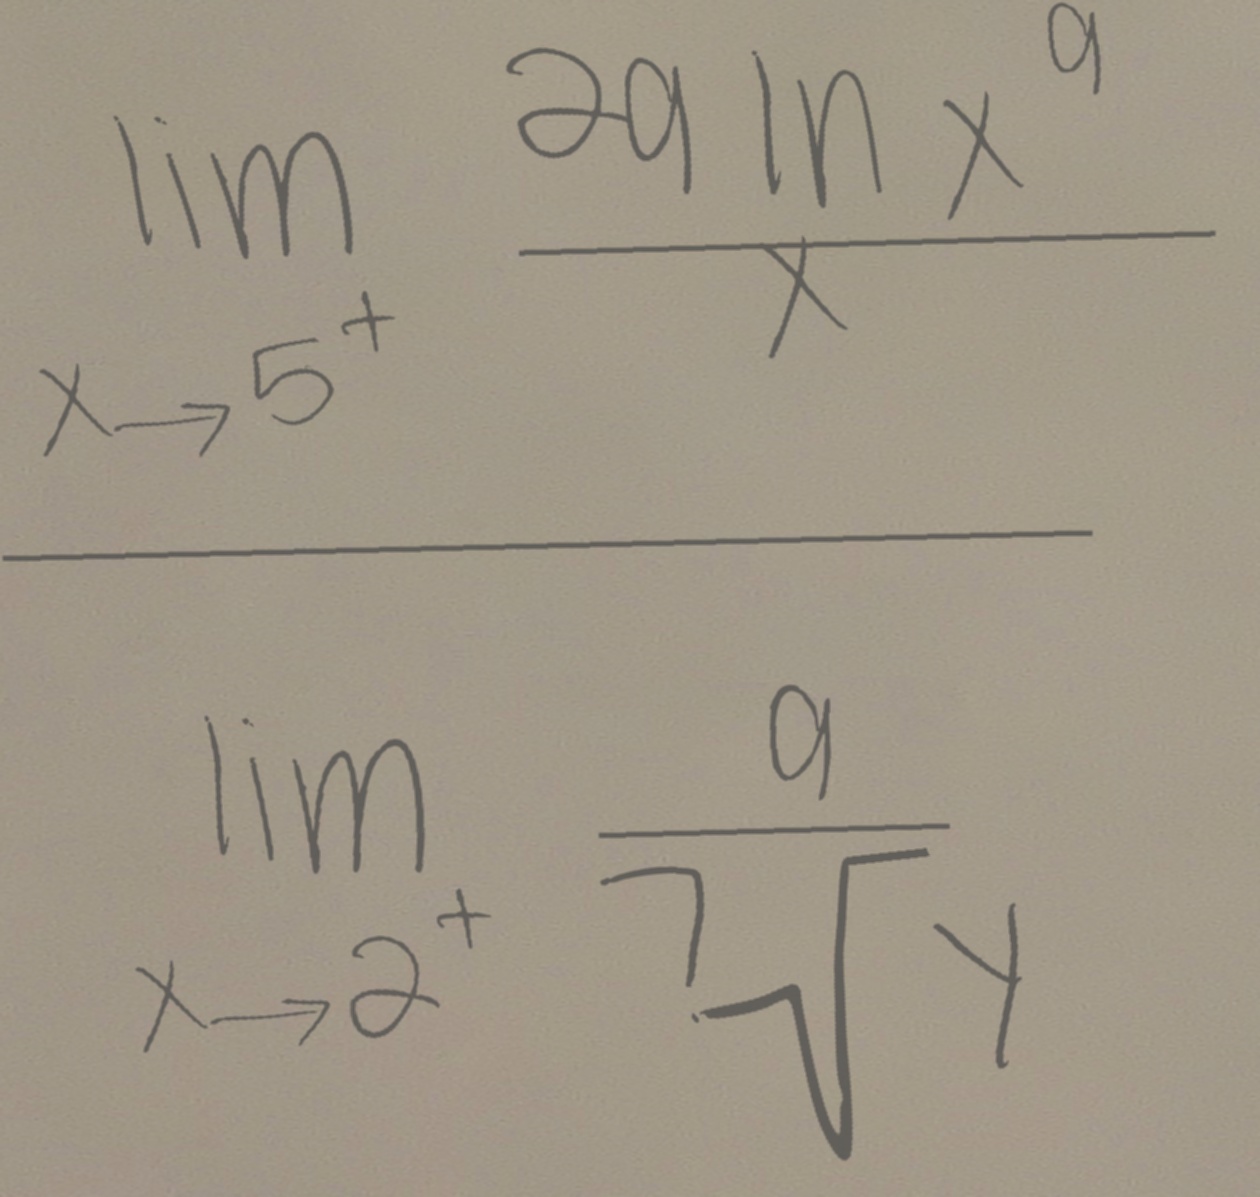 \frac{\lim_{x \to 5^+} \frac{29 \ln x^9}{x}}{\lim_{x \to 2^+} \frac{9}{\sqrt[7]{y}}}